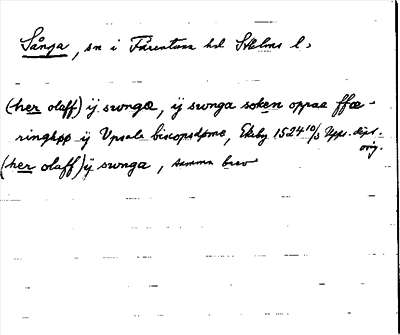 Sånga, sn i Färentuna hd Sthlms l.
(her olaff) ij swngæ, ij swnga soken oppaa ffæ-
ringxøø ij Vpsala biscopsdøme, Ekeby 1524 10/3 Upps. dipl.
orig.
(her olaff) ij swnga, samma brev